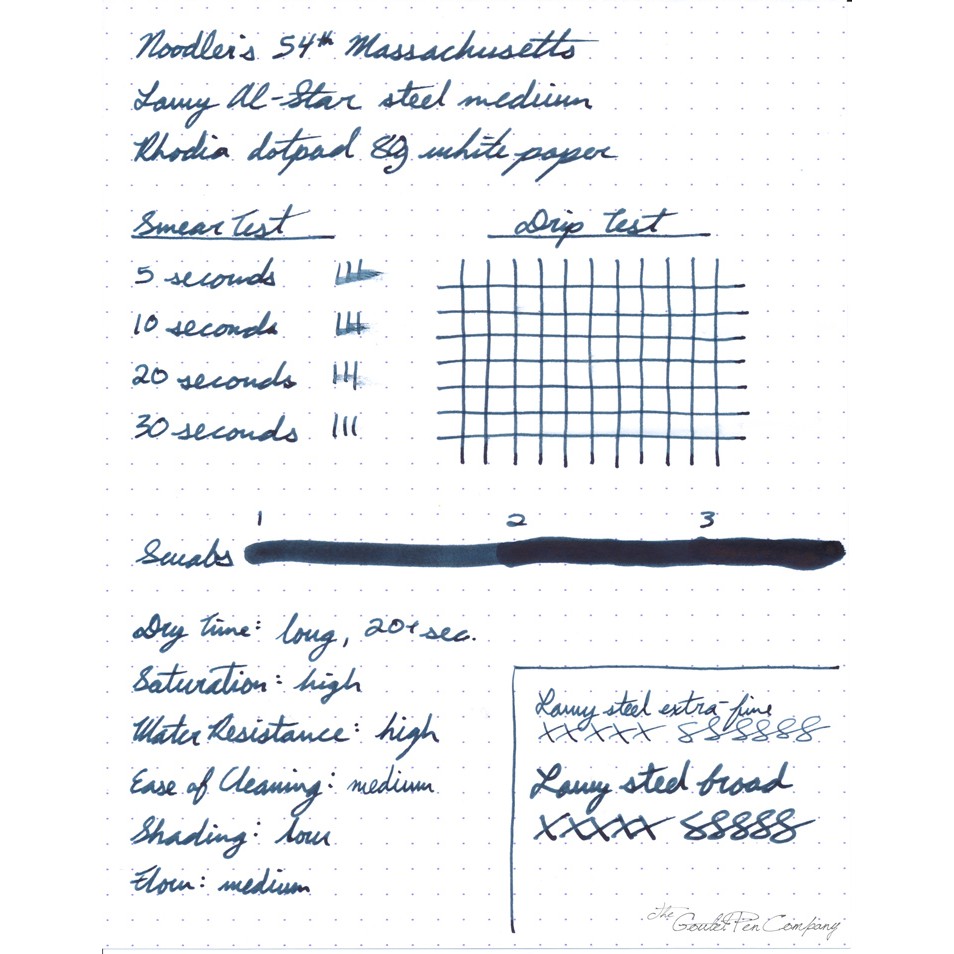 Noodler's 54th Massachusetts
Lamy Al-Star steel medium
Rhodia dotpad 80g white paper
Smear Test
5 seconds
10 seconds
20 seconds
30 seconds
Drip Test
1 2 3
Swabs
Dry Time: long, 20+ sec.
Saturation: high
Water Resistance: high
Ease of Cleaning: medium
Shading: low
Flow: medium
Lamy steel extra-fine
xxxxx ssssss
Lamy steel broad
xxxxx sssss
The Goulet Pen Company